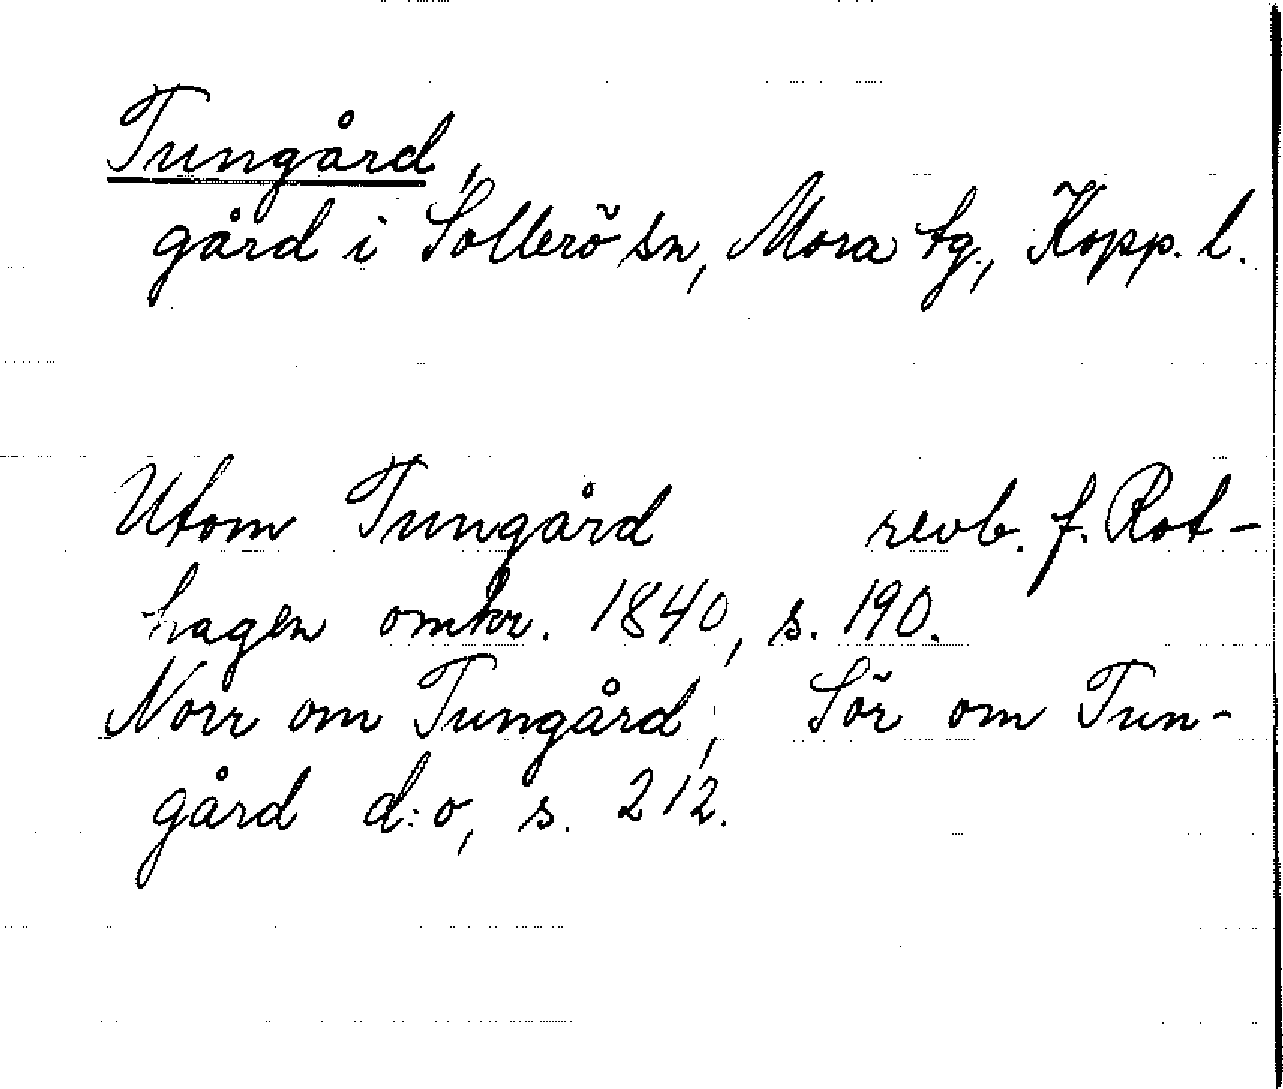 Tungård,
gård i Sollerö sn, Mora tg., Kopp. l.
Utom Tungård revb. f. Rot-
hagen omkr. 1840, s. 190.
Norr om Tungård, Sör om Tun-
gård d:o, s. 212.